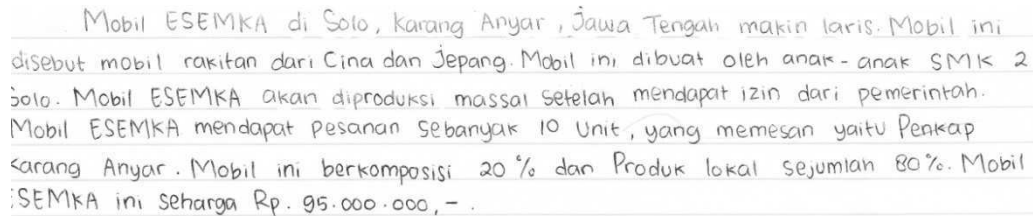 Mobil ESEMKA di Solo, Karang Anyar, Jawa Tengah makin laris. Mobil ini
disebut mobil rakitan dari Cina dan Jepang. Mobil ini dibuat oleh anak-anak SMK 2
Solo. Mobil ESEMKA akan diproduksi massal setelah mendapat izin dari pemerintah.
Mobil ESEMKA mendapat pesanan sebanyak 10 Unit, yang memesan yaitu Penkap
Karang Anyar. Mobil ini berkomposisi 20 % dan Produk lokal sejumlah 80 %. Mobil
ESEMKA ini seharga Rp. 95.000.000,- .